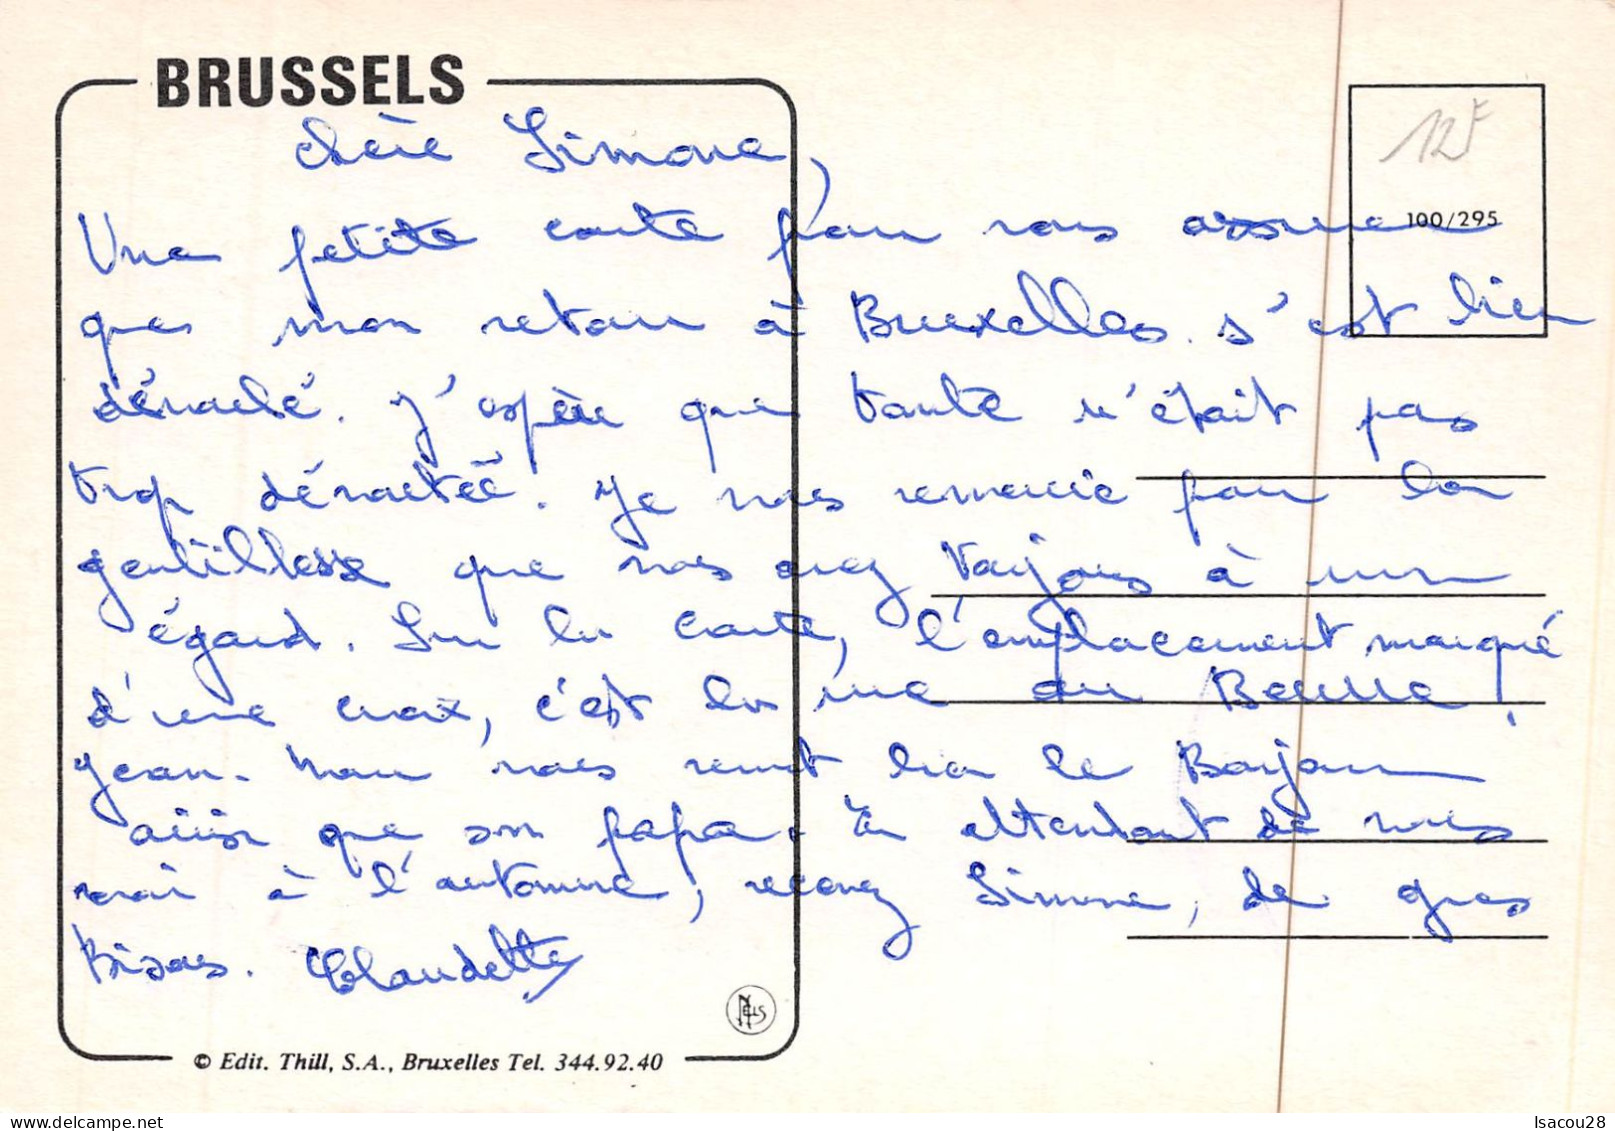 BRUSSELS
12F
100/295
Chère Simone,
Une petite carte pour vous assurer
que mon retour à Bruxelles s'est bien
déroulé. J'espère que tante n'était pas
trop
Je vous remercie pour la
gentillesse que vous avez toujours à mon
égard. Sur la carte, l'emplacement marqué
d'une croix, c'est la rue au Beurre!
Jean-Marc vous remet bien le Bonjour
ainsi que son papa. En attendant de vous
voir à l'automne, recevez Simone, de gros
Bisous. Claudette
NELS
© Edit. Thill, S.A., Bruxelles Tel. 344.92.40
Isacou28